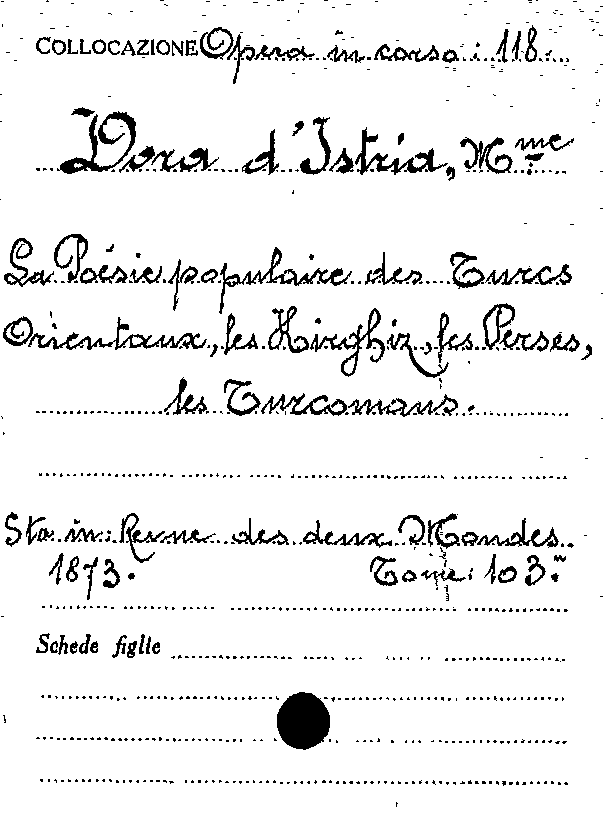 COLLOCAZIONE Opera in corso: 118.
Dora d'Istria, Mme
La Poésie populaire des Turcs
Orientaux, les Kirghiz, les Perses,
les Turcomans.
Sta in: Revue des deux Mondes.
1873. Tome: 103.
Schede figlie